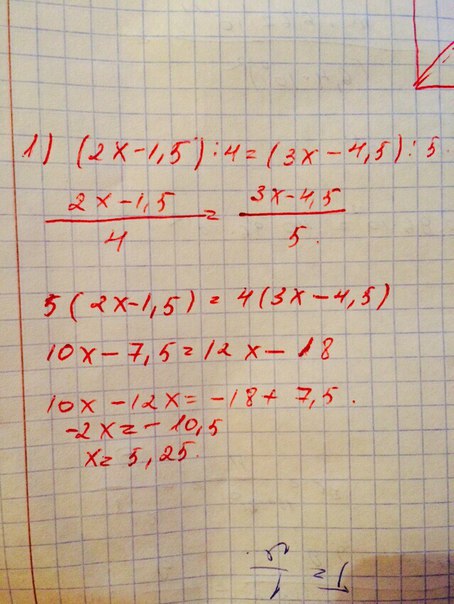 1) (2x-1,5):4=(3x-4,5):5.
2x-1,5/4 = 3x-4,5/5.
5(2x-1,5)=4(3x-4,5)
10x-7,5=12x-18
10x-12x=-18+7,5.
-2x=-10,5
x=5,25.